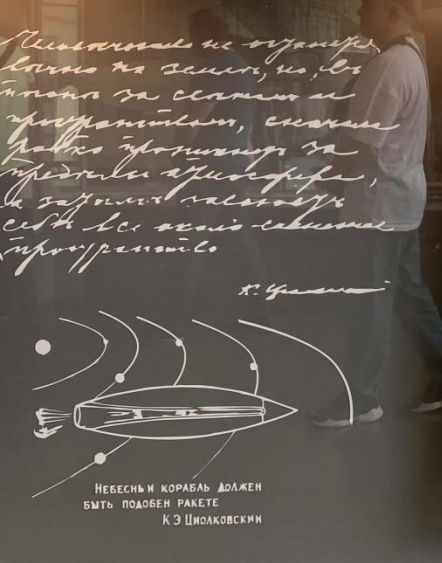 Человечество не останется
вечно на земле, но, въ
погоне за светом и
пространством, сначала
робко проникнет за
пределы атмосферы,
а затем завоюет
себе все около-солнечное
пространство
К. Циолковский
НЕБЕСНЫЙ КОРАБЛЬ ДОЛЖЕН
БЫТЬ ПОДОБЕН РАКЕТЕ
К Э ЦИОЛКОВСКИЙ